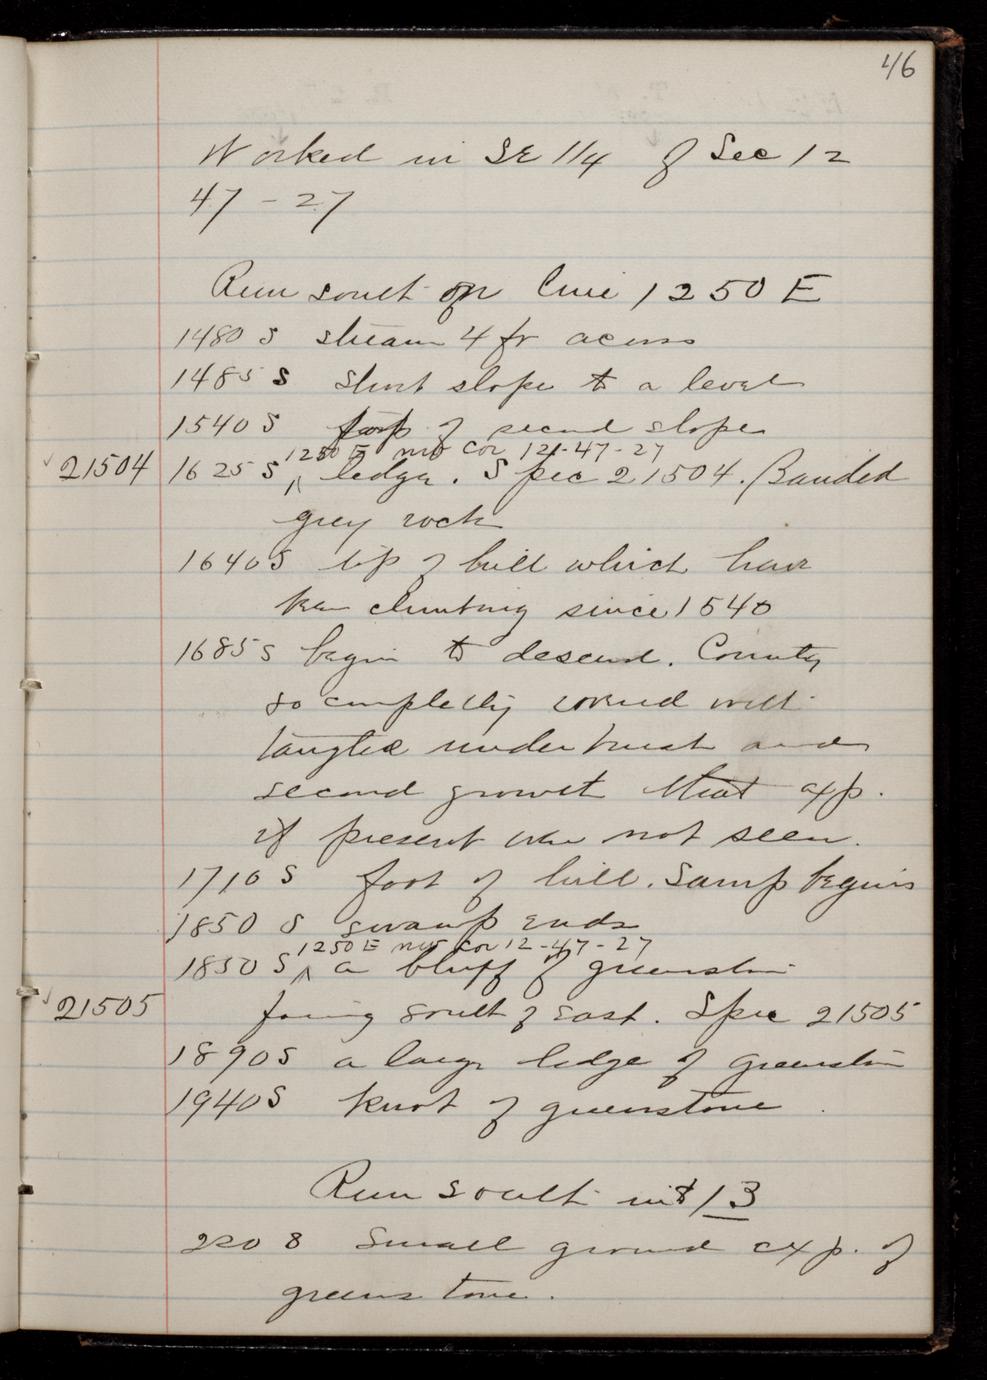 46
Worked in SE 1/4 of Sec 12
47 - 27
Run south on line 1250 E
1480 S stream 4 ft across
1485 S short slope to a level
1540 S foot of second slope
1250 E nw cor 12-47-27
21504 1625 S ^ ledge. Spec 21504. Banded
grey rock
1640 S top of hill which have
been climbing since 1540
1685 S begin to descend. Country
so completely covered with
tangled underbrush and
second growth that exp.
if present are not seen.
1710 S foot of hill. Samp begins
1850 S swamp ends
1250 E nw cor 12-47-27
1850 S ^ a bluff of greenstone
21505 facing south of east. Spec 21505
1890 S a large ledge of greenstone
1940 S knot of greenstone
Run south into 13
220 S Small ground exp. of
greenstone.